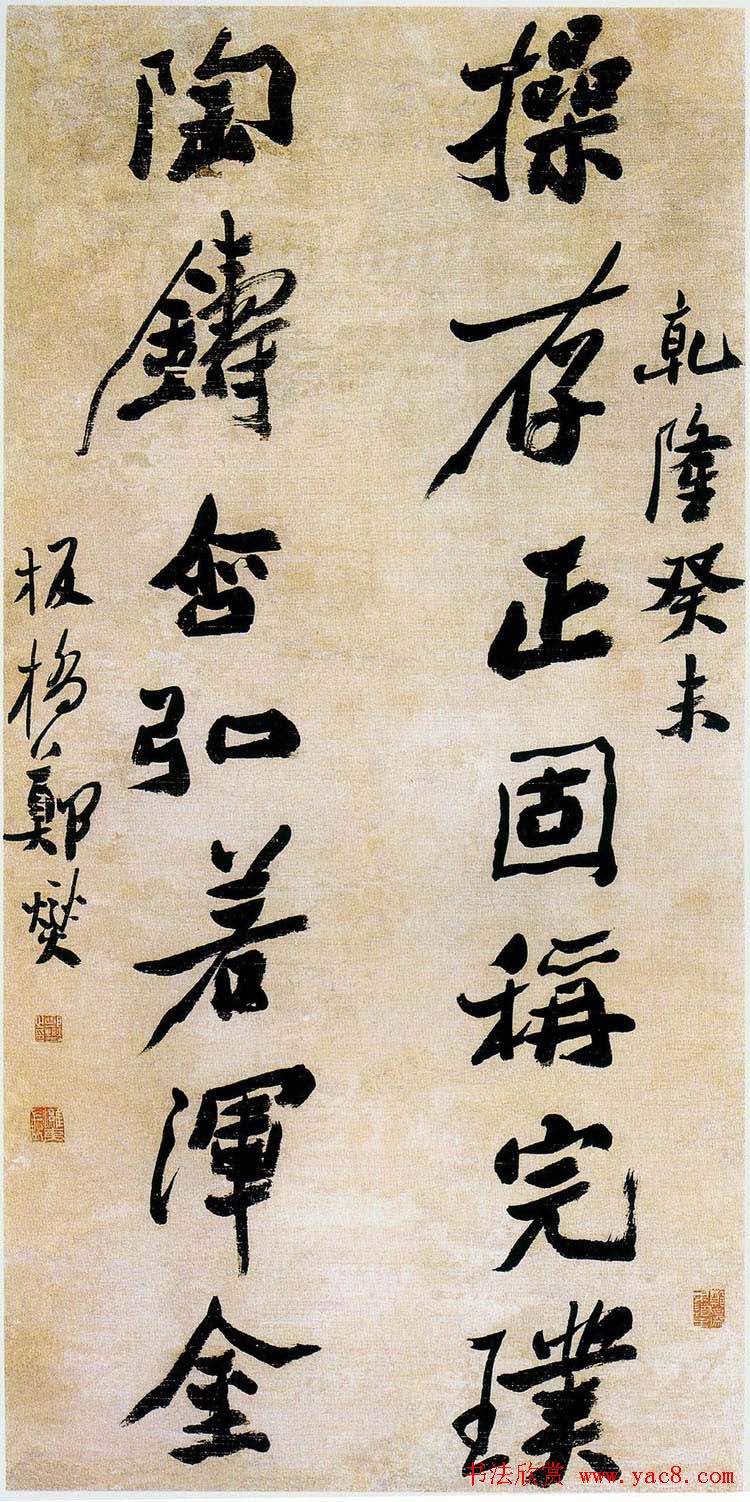 乾隆癸未
操存正固稱完璞
陶鑄含弘若渾金
板橋鄭燮
书法欣赏 www.yac8.com